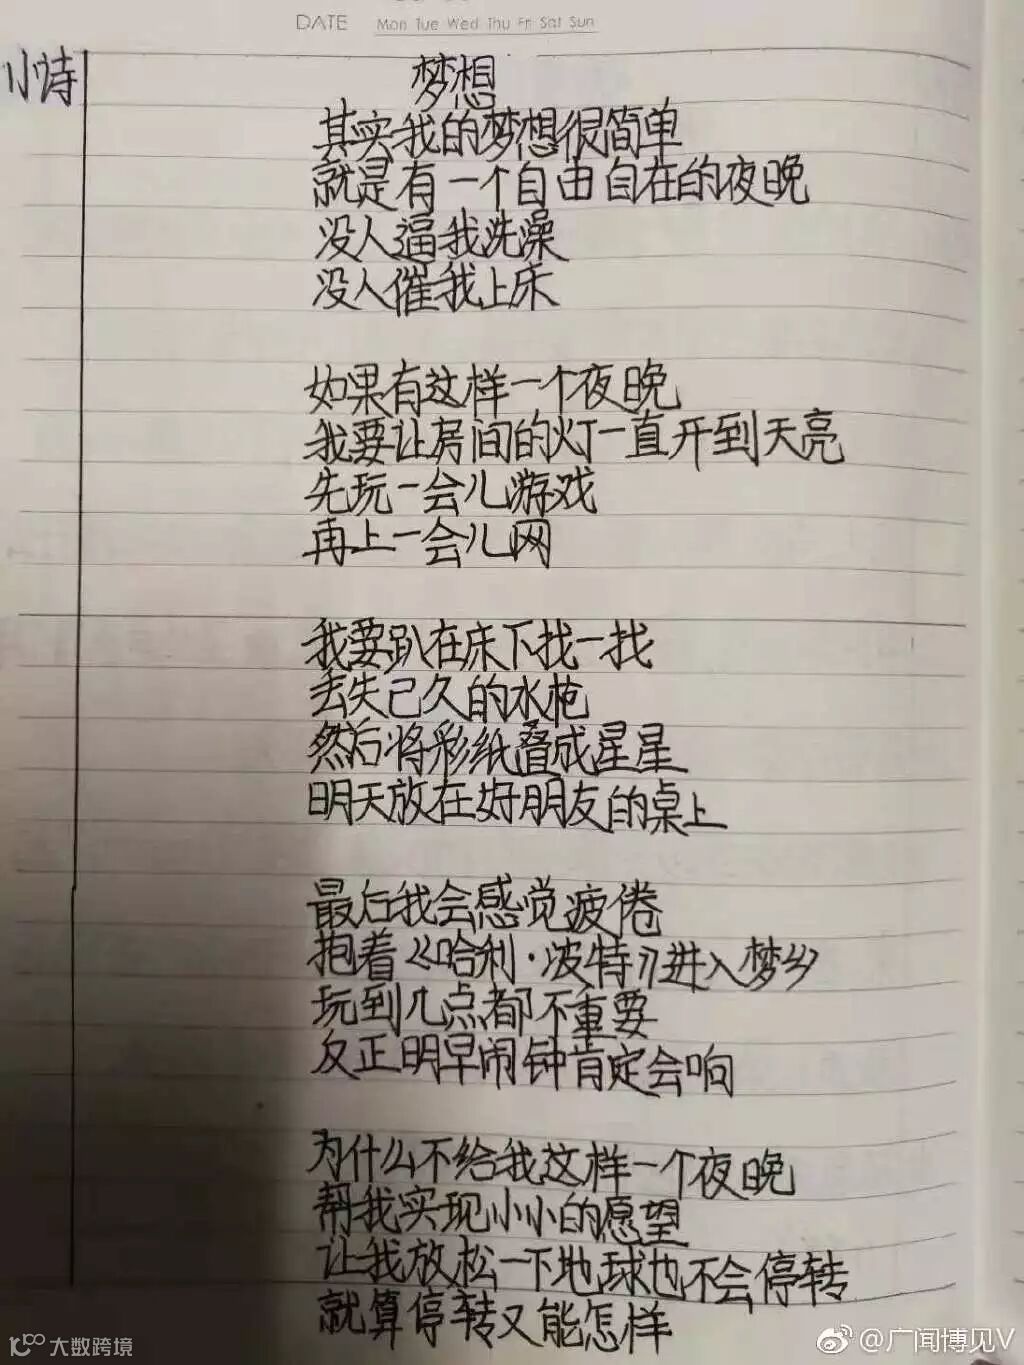 DATE Mon Tue Wed Thu Fri Sat Sun
小诗
梦想
其实我的梦想很简单
就是有一个自由自在的夜晚
没人逼我洗澡
没人催我上床
如果有这样一个夜晚
我要让房间的灯一直开到天亮
先玩一会儿游戏
再上一会儿网
我要趴在床下找一找
丢失已久的水枪
然后将彩纸叠成星星
明天放在好朋友的桌上
最后我会感觉疲倦
抱着《哈利·波特》进入梦乡
玩到几点都不重要
反正明早闹钟肯定会响
为什么不给我这样一个夜晚
帮我实现小小的愿望
让我放松一下地球也不会停转
就算停转又能怎样
大数跨境
@广闻博见V